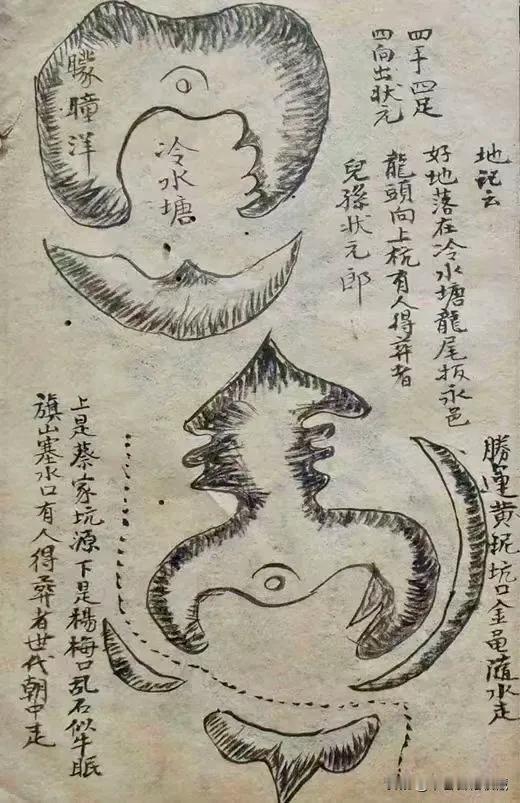 地記云
好地落在冷水塘龍尾扳永邑
龍頭向上杭有人得葬者
兒孫狀元郎
四手四足
四向出状元
冷水塘
曚曈洋
勝運黃坭坑口金黾隨水走
上是蔡家坑源下是楊梅口乱石似牛眠
旗山塞水口有人得葬者世代朝中走